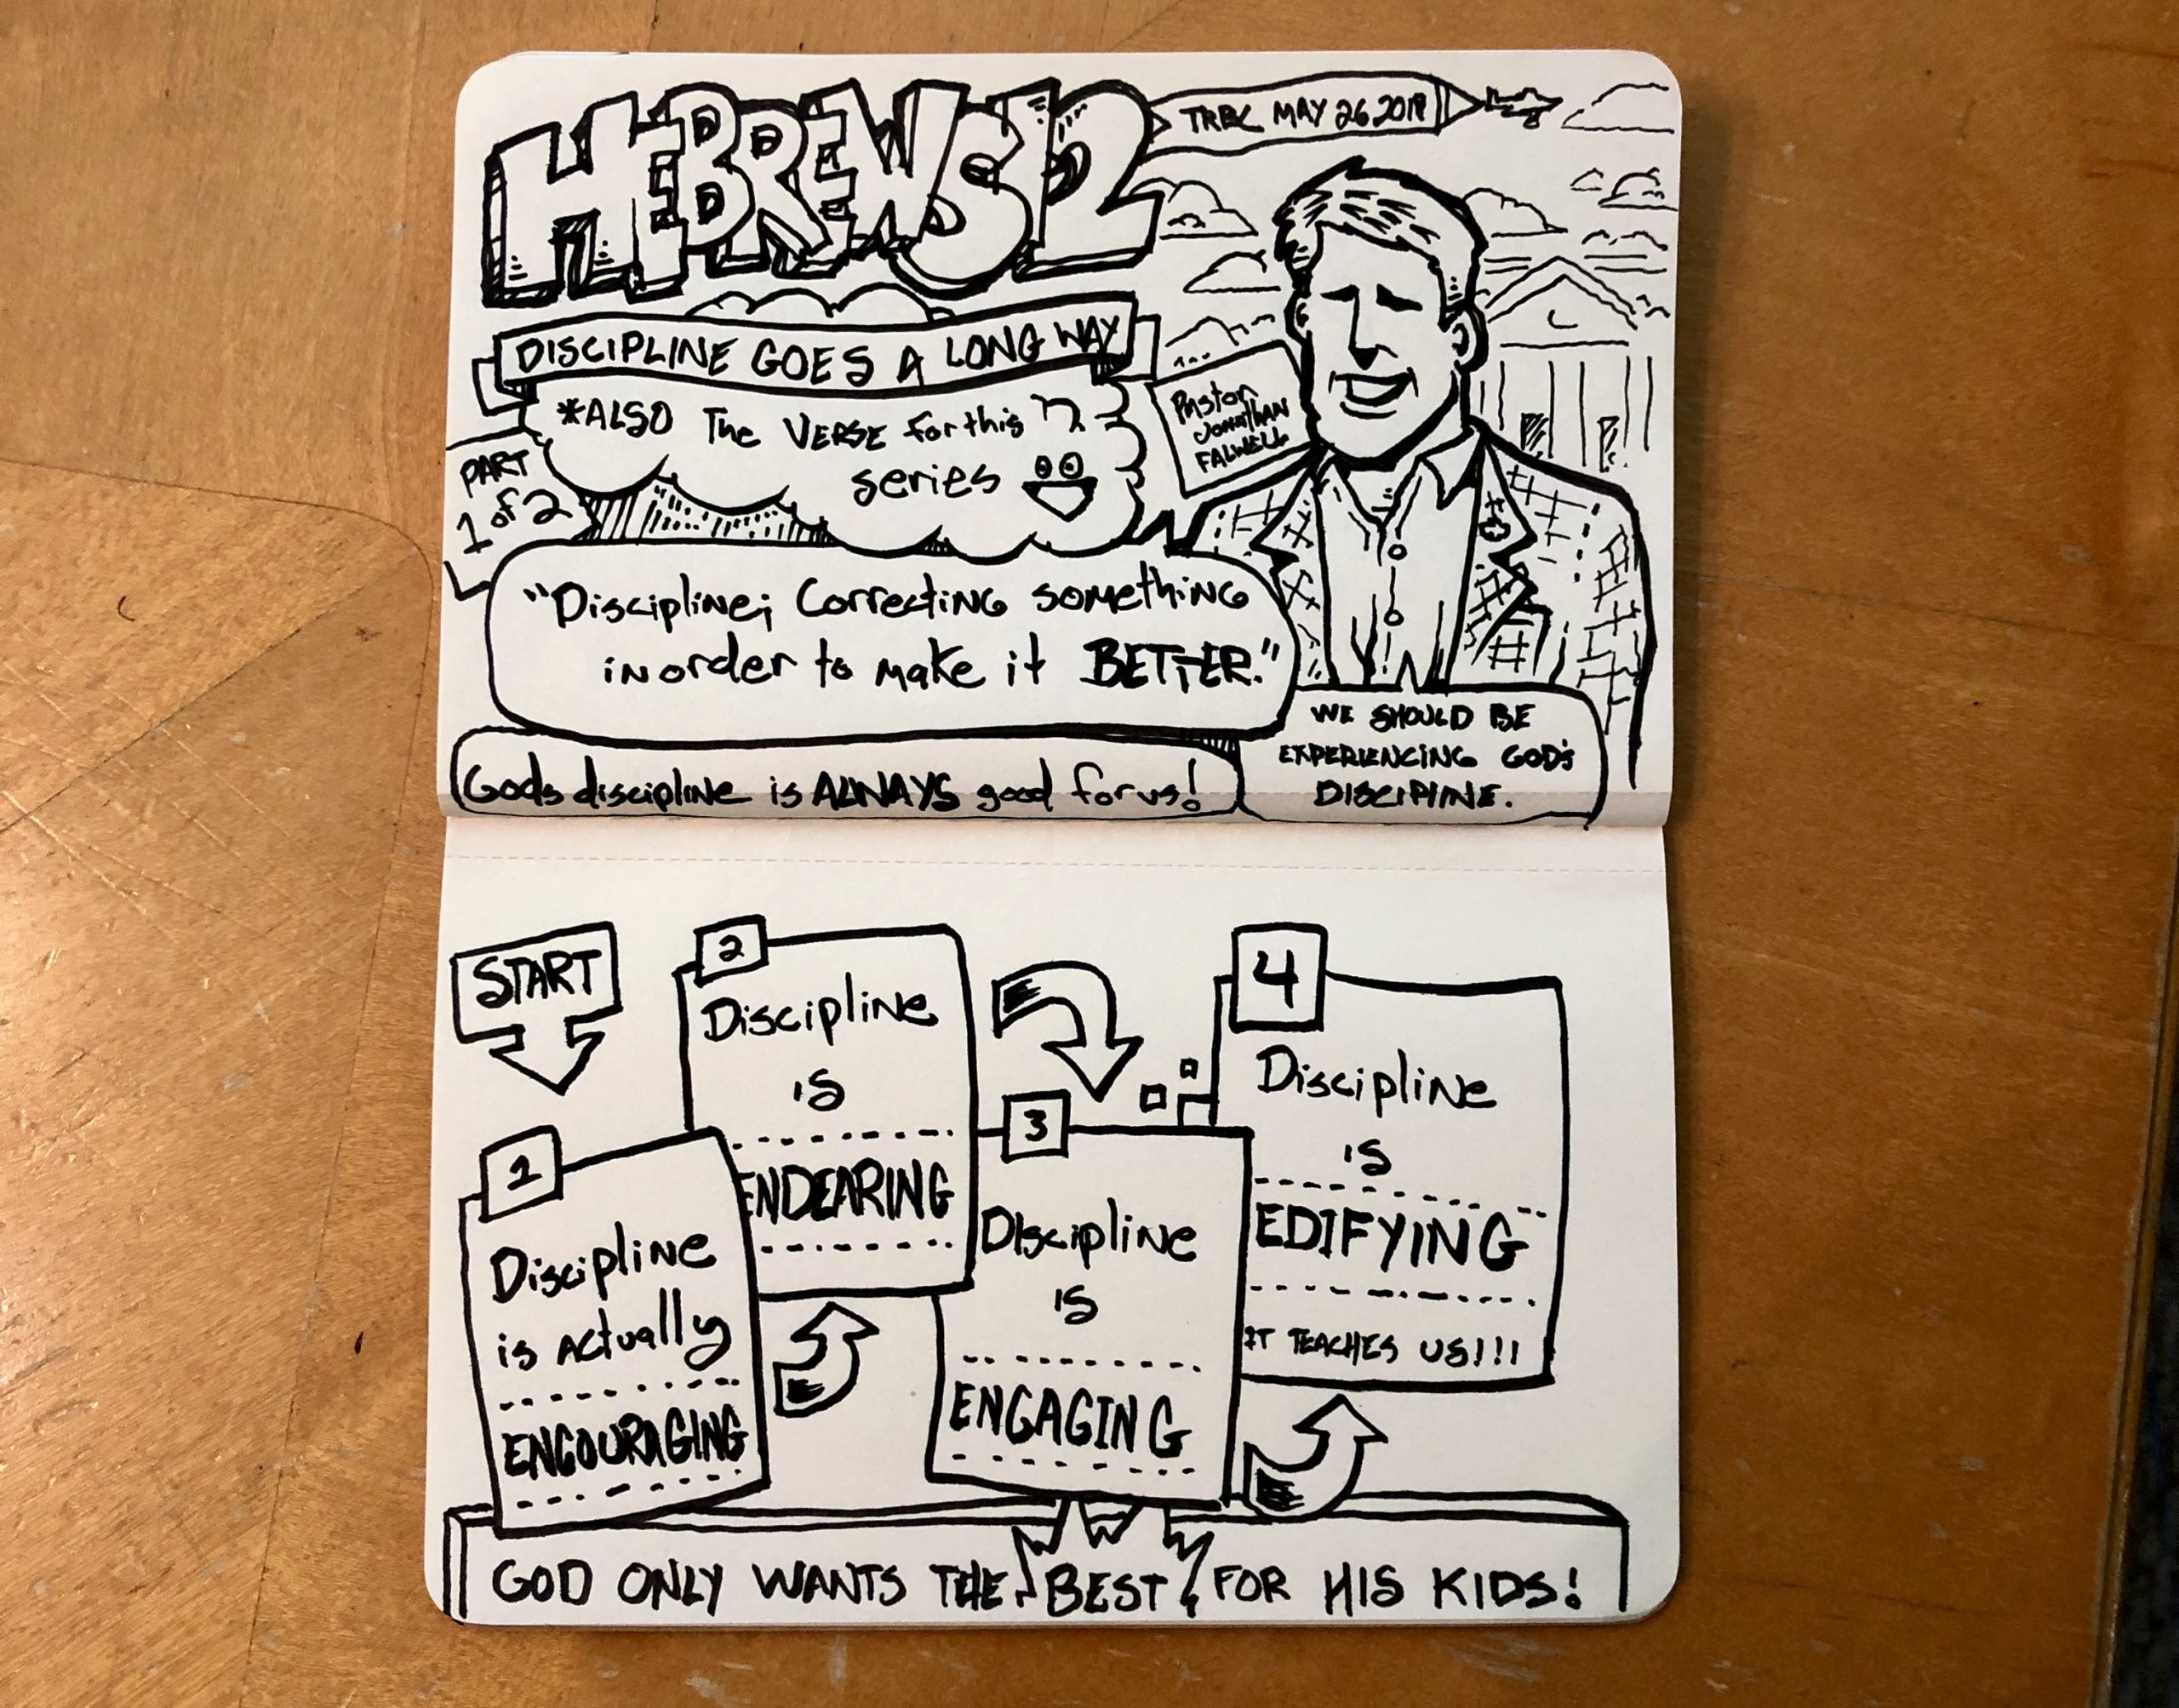 HEBREWS 12
TRBC MAY 26 2019
DISCIPLINE GOES A LONG WAY
*ALSO The VERSE for this
series
PART
1 of 2
Pastor
Jonathan
FALWELL
"Discipline; Correcting something
in order to make it BETTER."
Gods discipline is ALWAYS good for us!
WE SHOULD BE
EXPERIENCING GOD'S
DISCIPLINE.
START
1
Discipline
is actually
ENCOURAGING
2
Discipline
is
ENDEARING
3
Discipline
is
ENGAGING
4
Discipline
is
EDIFYING
IT TEACHES US!!!
GOD ONLY WANTS THE BEST FOR HIS KIDS!